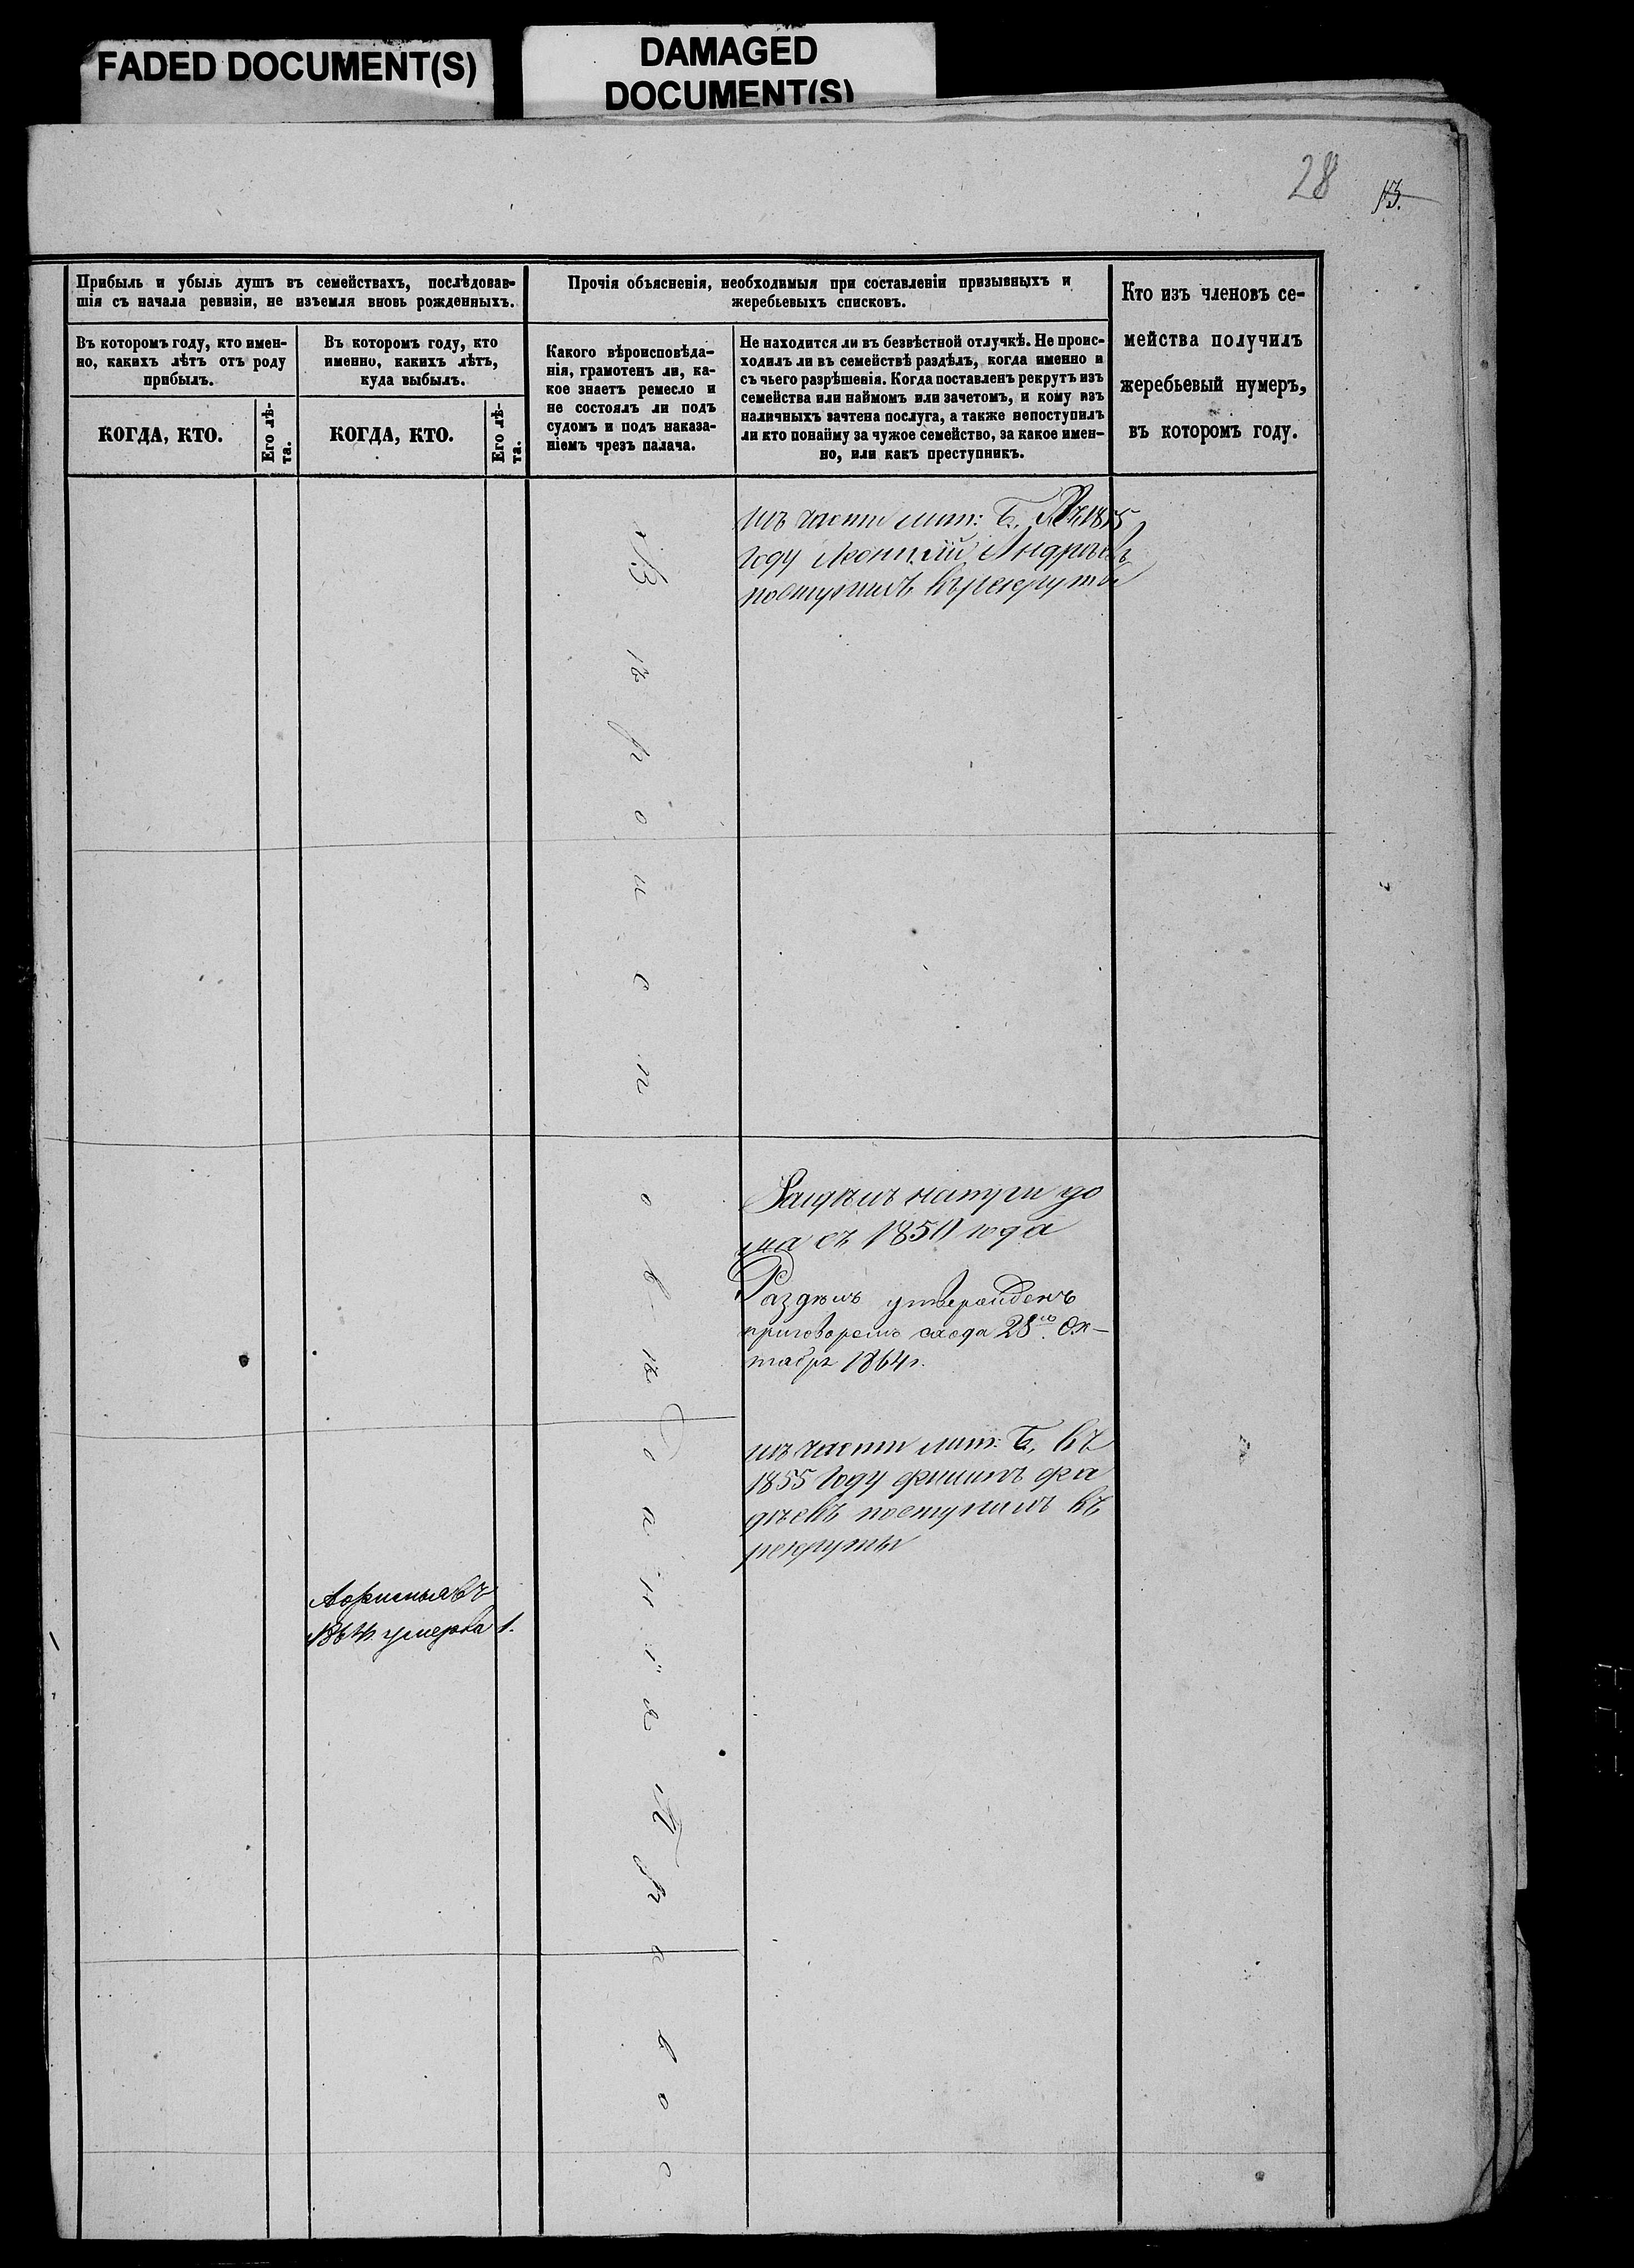 FADED DOCUMENT(S)
DAMAGED
DOCUMENT(S)
28
13.
Прибыль и убыль душъ въ семействахъ, послѣдовав-
шія съ начала ревизіи, не изъемля вновь рожденныхъ.
Въ которомъ году, кто имен-
но, какихъ лѣтъ отъ роду
прибылъ.
КОГДА, КТО.
Его лѣ-
та.
Въ которомъ году, кто
именно, какихъ лѣтъ,
куда выбылъ.
КОГДА, КТО.
Его лѣ-
та.
Прочія объясненія, необходимыя при составленіи призывныхъ и
жеребьевыхъ списковъ.
Какого вѣроисповѣда-
нія, грамотенъ ли, ка-
кое знаетъ ремесло и
не состоялъ ли подъ
судомъ и подъ наказа-
ніемъ чрезъ палача.
Не находится ли въ безвѣстной отлучкѣ. Не проис-
ходилъ ли въ семействѣ раздѣлъ, когда именно и
съ чьего разрѣшенія. Когда поставленъ рекрутъ изъ
семейства или наймомъ или зачетомъ, и кому изъ
наличныхъ зачтена послуга, а также непоступилъ
ли кто понайму за чужое семейство, за какое имен-
но, или какъ преступникъ.
Кто изъ членовъ се-
мейства получилъ
жеребьевый нумеръ,
въ которомъ году.
Вѣроисповѣданія Правос
изъ части лит: Б. Въ 1855
году Леонтій Андреевъ
поступилъ въ рекруты
Раздѣлъ натури до
ма съ 1850 года
Раздѣлъ утвержденъ
приговоромъ схода 28го Ок-
тября 1864г.
изъ части лит: Б. въ
1855 году Филипъ Фа
дѣевъ поступилъ въ
рекруты
въ
умерла 1.